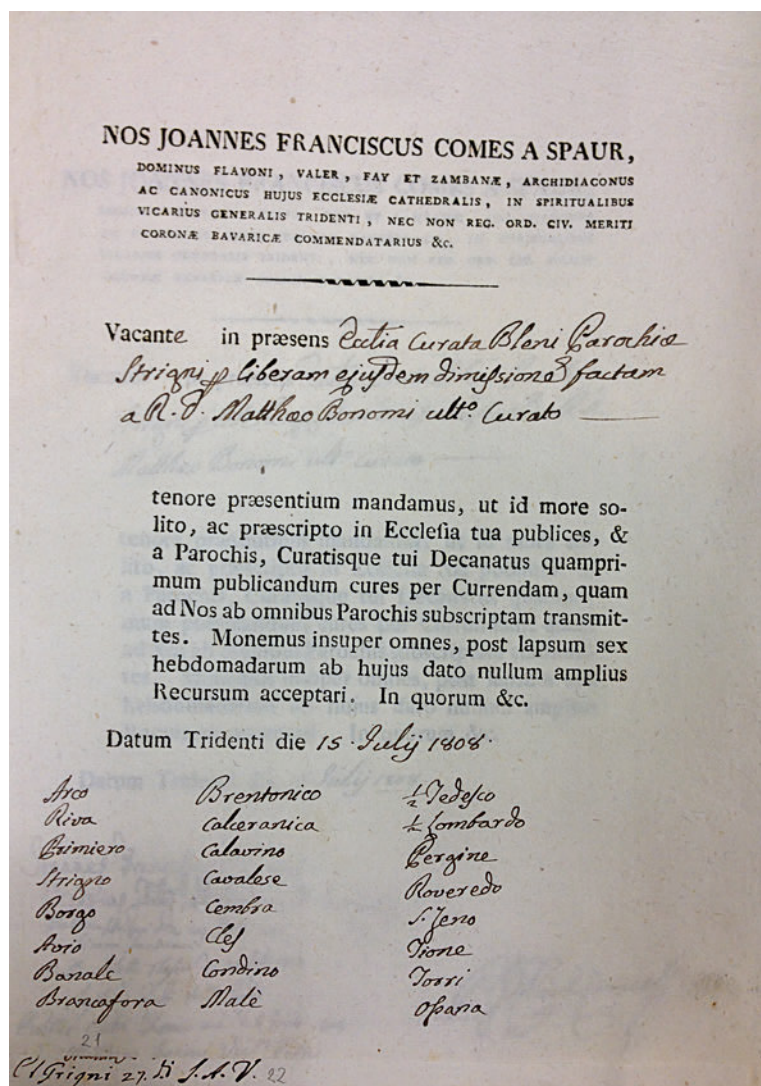 NOS JOANNES FRANCISCUS COMES A SPAUR,
DOMINUS FLAVONI, VALER, FAY ET ZAMBANÆ, ARCHIDIACONUS
AC CANONICUS HUJUS ECCLESIÆ CATHEDRALIS, IN SPIRITUALIBUS
VICARIUS GENERALIS TRIDENTI, NEC NON REG. ORD. CIV. MERITI
CORONÆ BAVARICÆ COMMENDATARIUS &c.
Vacante in præsens Ecctia Curata Bleni Parochiæ
Strigni liberam ejusdem dimissione factam
a R. D. Matthæo Bonomi ulto. Curato
tenore præsentium mandamus, ut id more so-
lito, ac præscripto in Ecclesia tua publices, &
a Parochis, Curatisque tui Decanatus quampri-
mum publicandum cures per Currendam, quam
ad Nos ab omnibus Parochis subscriptam transmit-
tes. Monemus insuper omnes, post lapsum sex
hebdomadarum ab hujus dato nullum amplius
Recursum acceptari. In quorum &c.
Datum Tridenti die 15 Julij 1808.
Arco Brentonico ½ Tedesco
Riva Calceranica ½ Lombardo
Primiero Calavino Pergine
Strigno Cavalese Roveredo
Borgo Cembra S. Zeno
Avio Cles Tione
Banale Condino Torri
Brancafora Malè Ossana
21
Grigni 27. S. A. V. 22